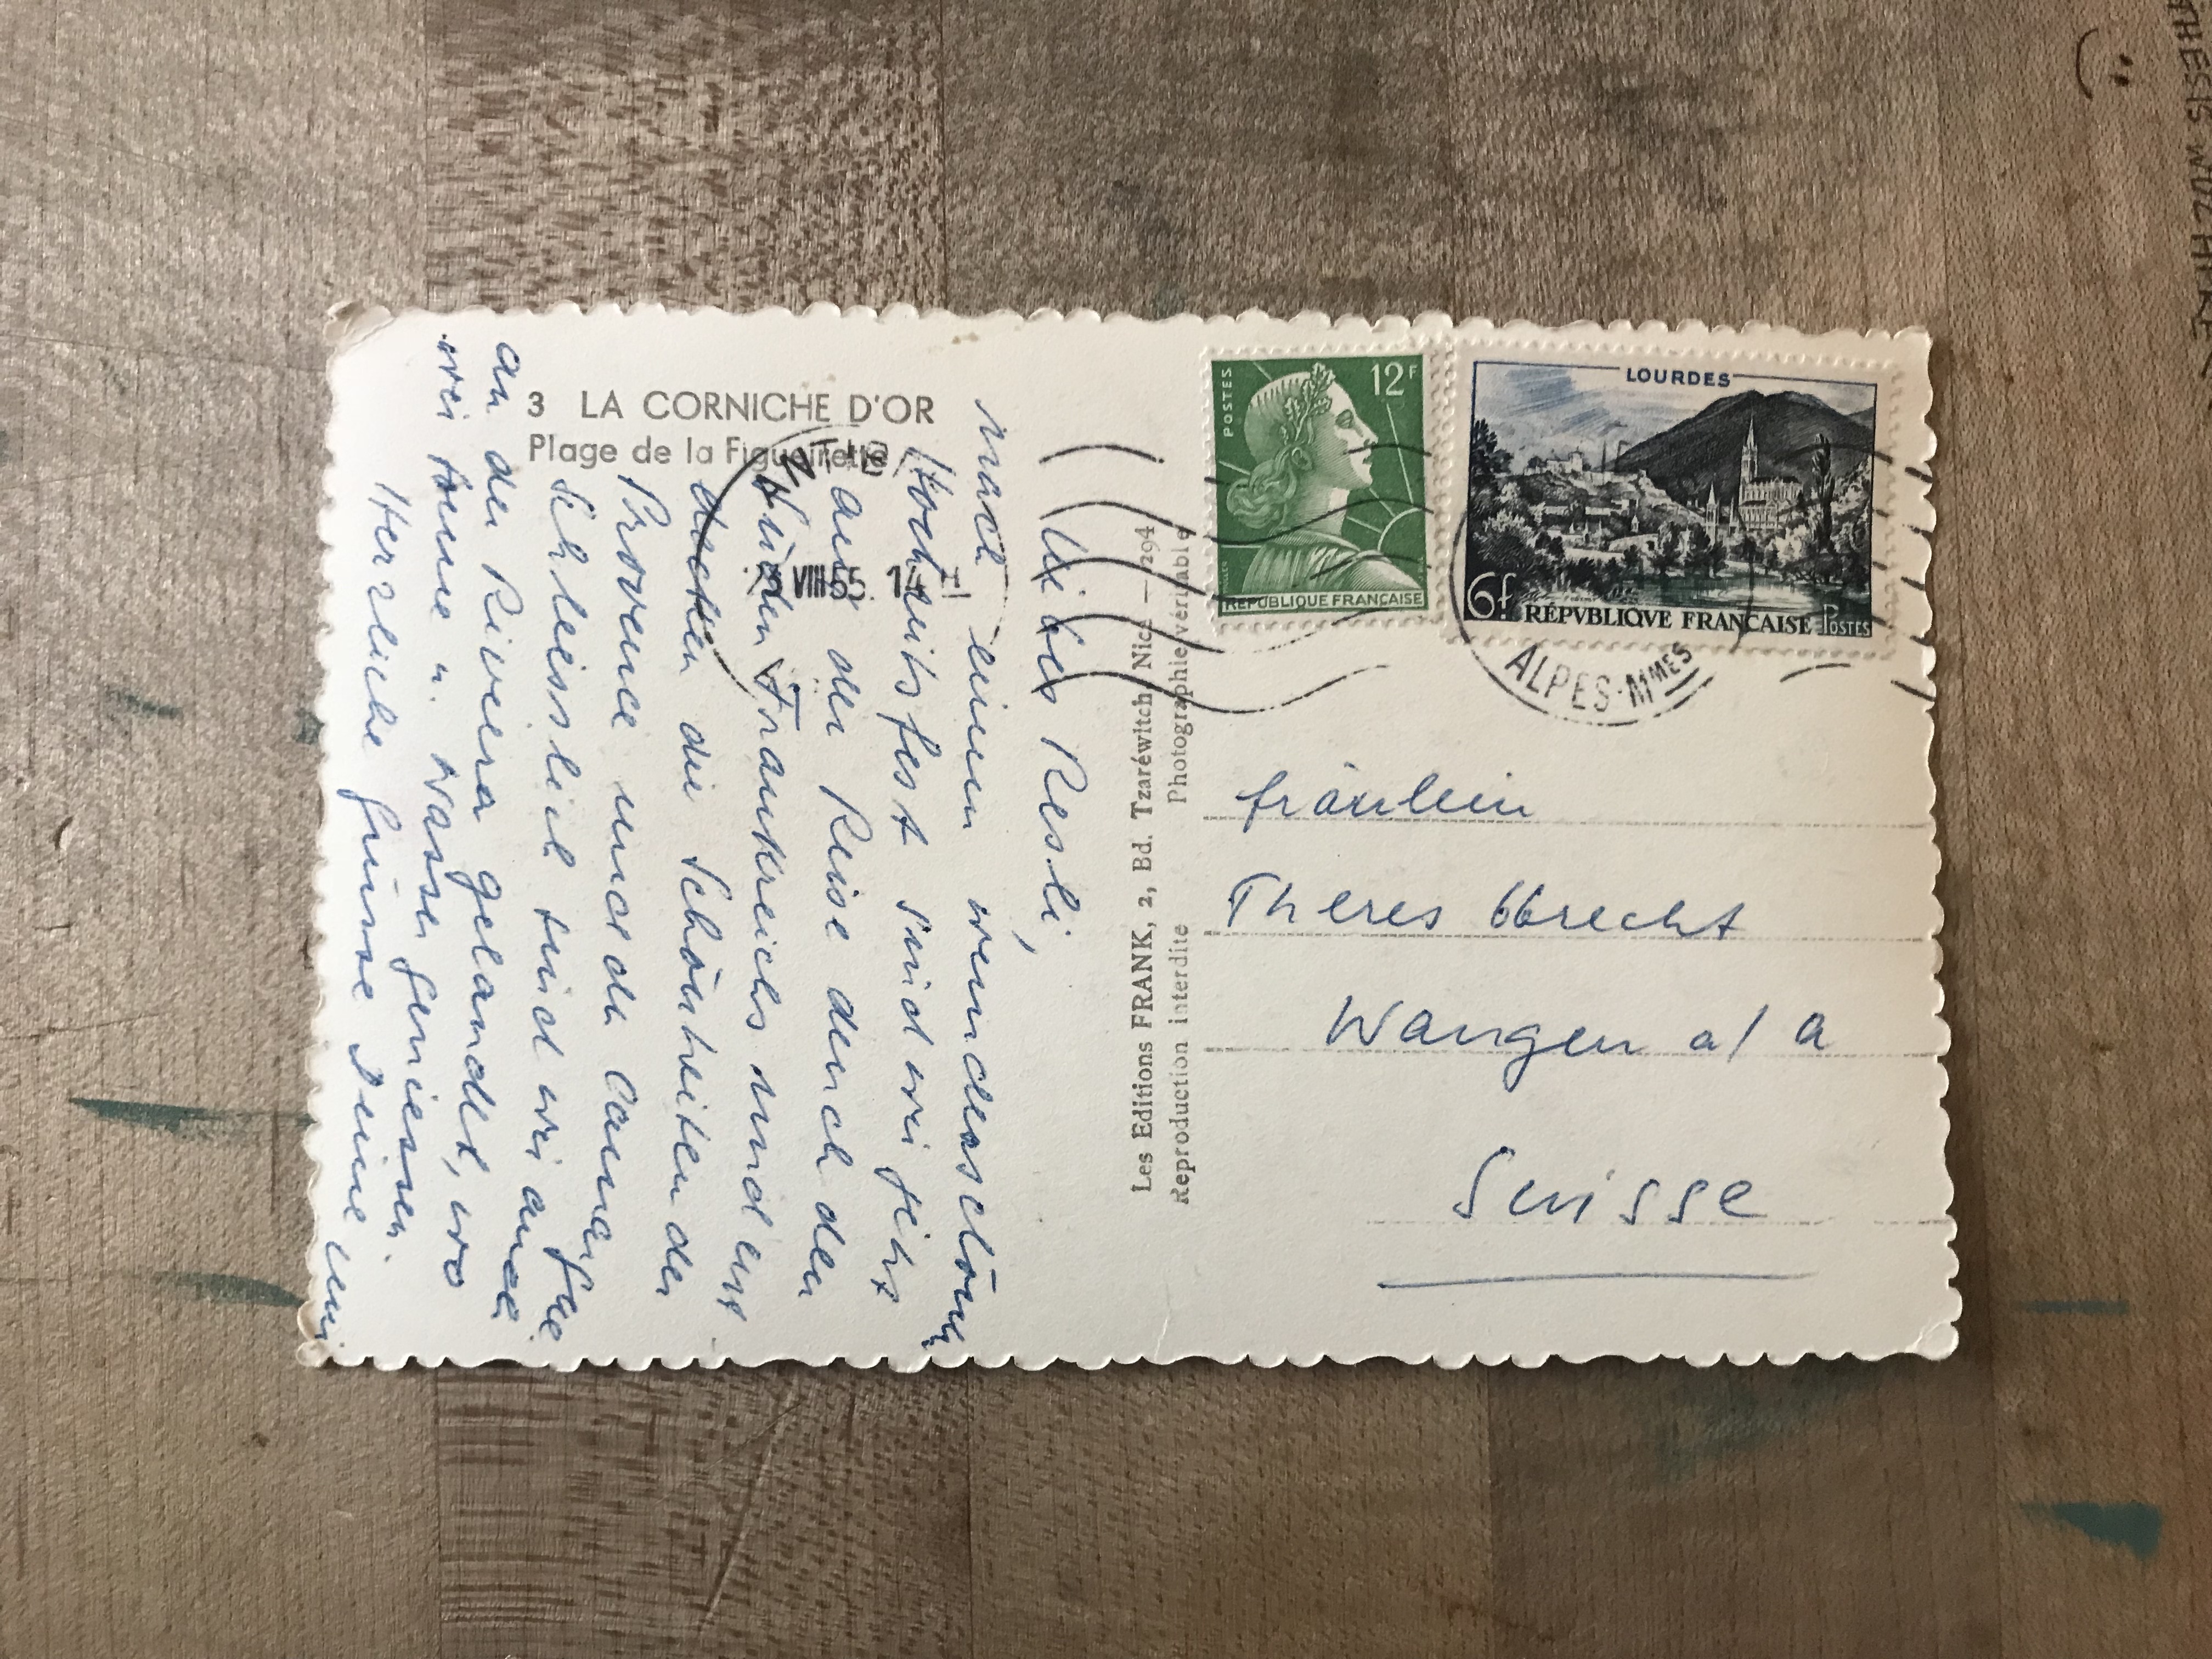 3 LA CORNICHE D'OR
Plage de la Figueirette
Liebes Resli,
Nach einem wunderschönen
Hochzeitsfest sind wir jetz
auf der Reise durch den
Süden Frankreichs und ent
decken die Schönheiten der
Provence und der Camar
Schliesslich sind wir
an der Rivera gelandet, wo
wir Sonne u. Wasser geniessen.
Herzliche Grüsse Deine
Les Editions FRANK, 2, Bd. Tzaréwitch Nice — 294
Reproduction interdite Photographie véritable
POSTES
12F
REPUBLIQUE FRANÇAISE
LOURDES
6f RÉPVBLIQVE FRANÇAISE POSTES
VIII 55
ALPES-MMES
Fräulein
Theres Obrecht
Wangen a/ A
Suisse